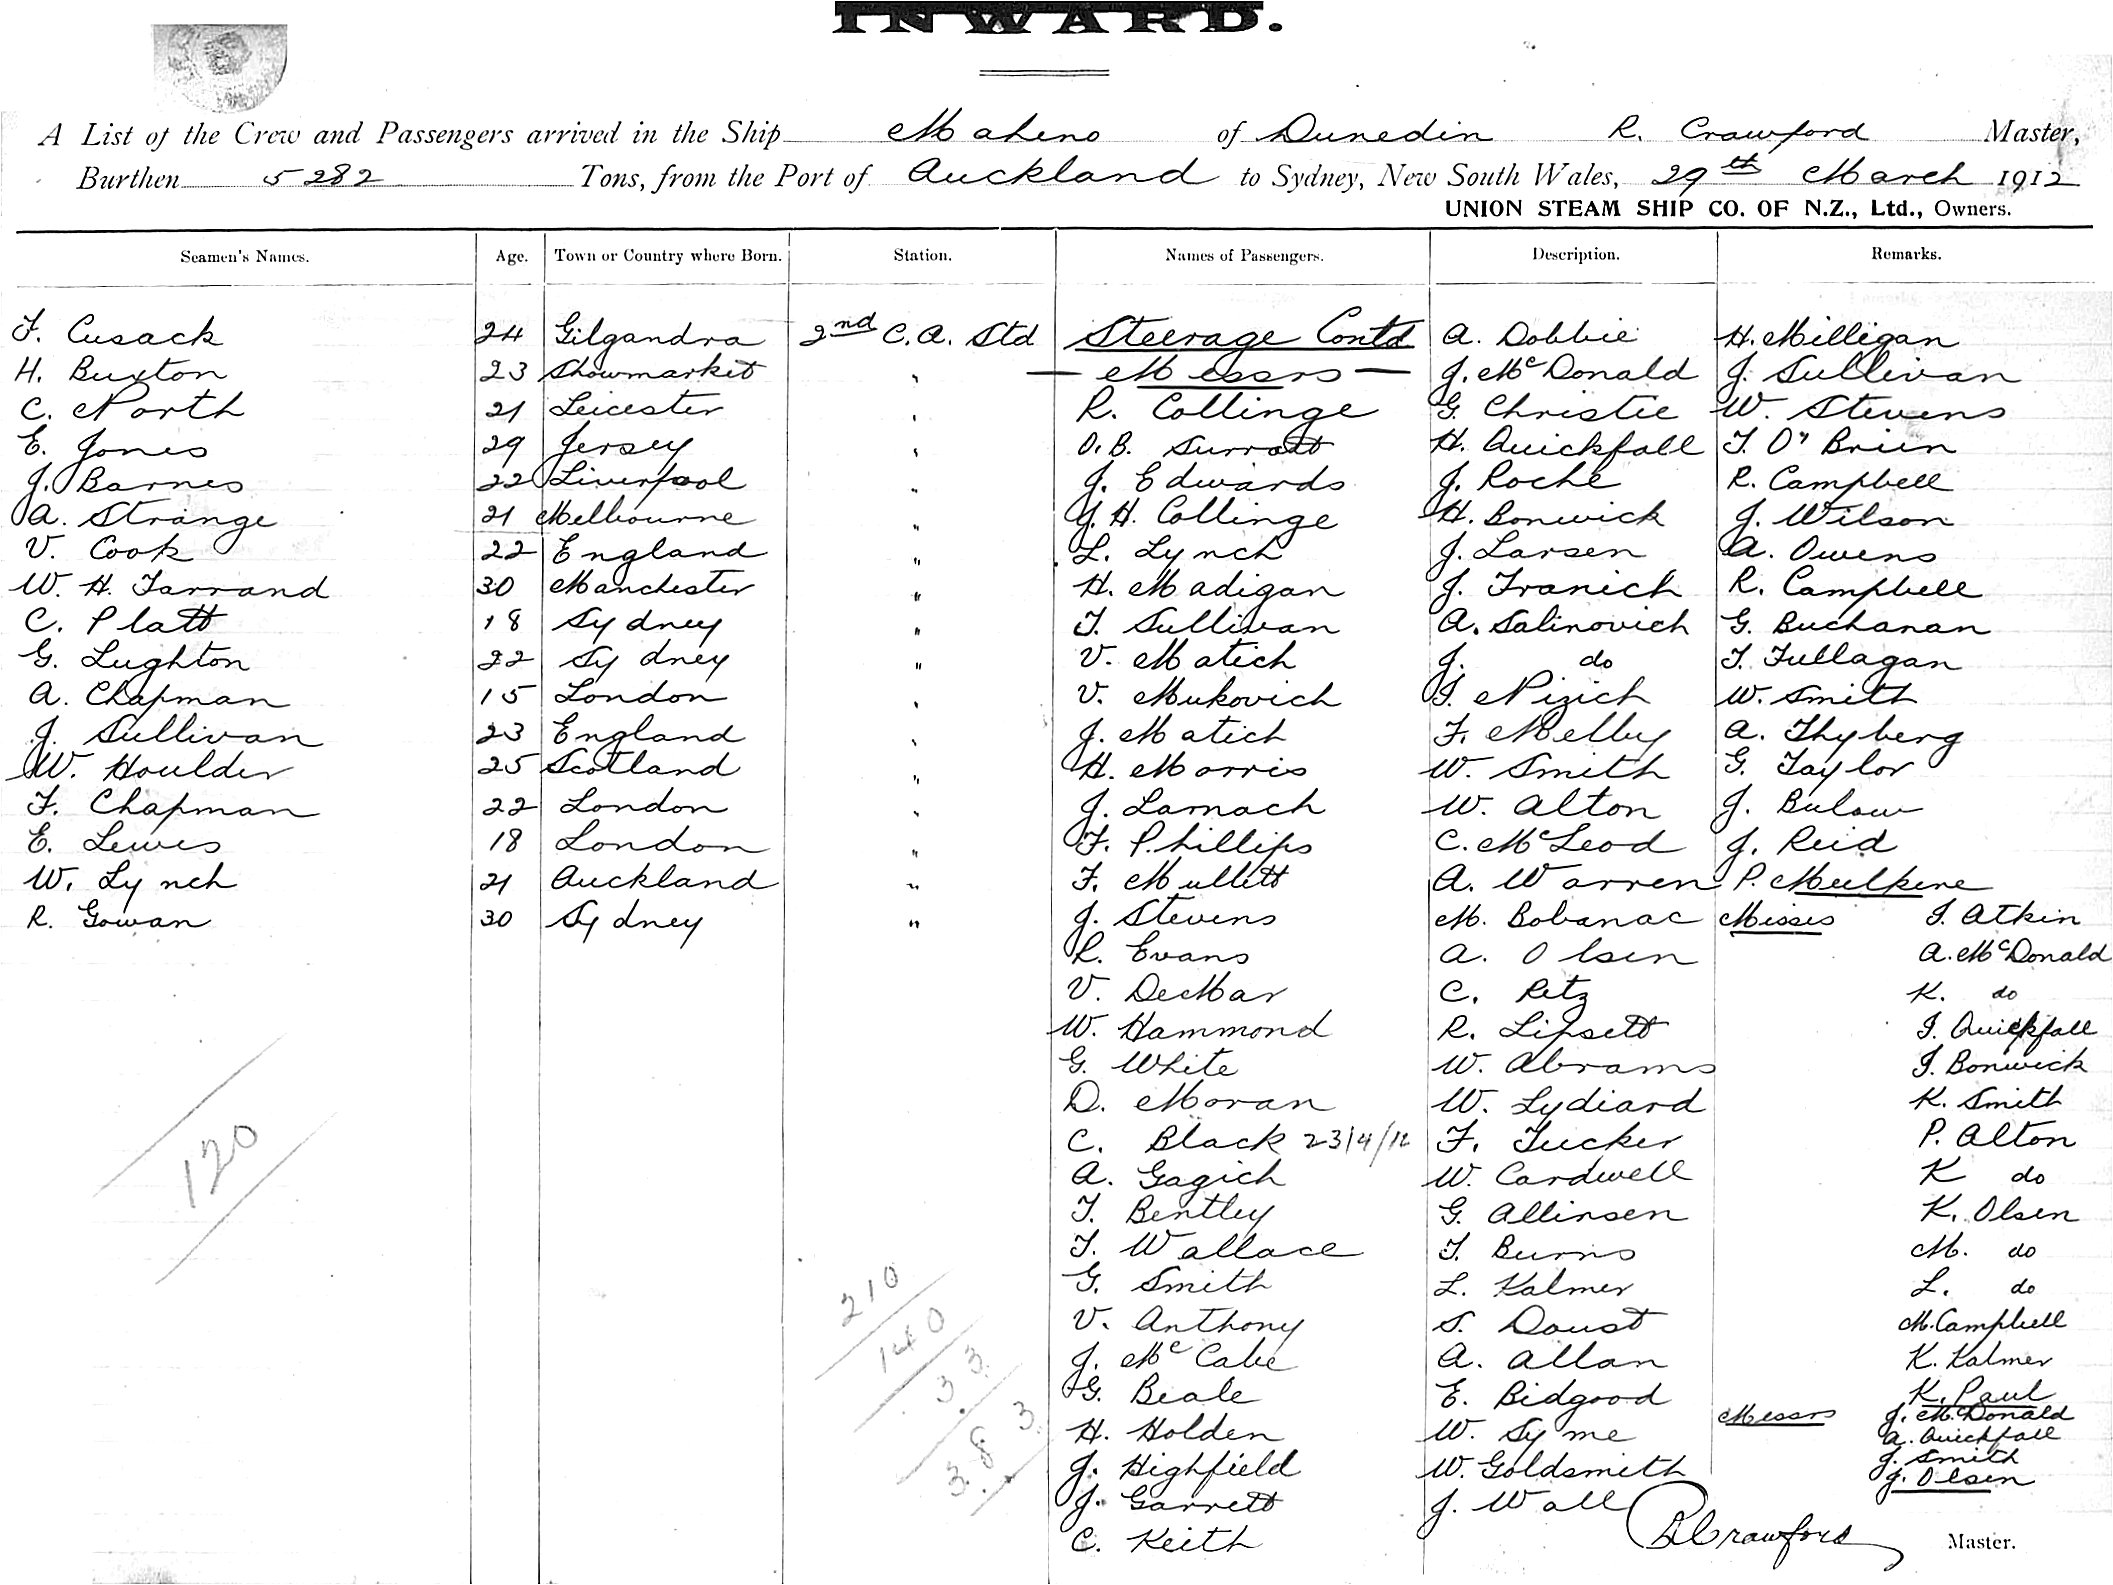 INWARD.
A List of the Crew and Passengers arrived in the Ship Maheno of Dunedin R. Crawford Master,
Burthen 5282 Tons, from the Port of Auckland to Sydney, New South Wales, 29th March 1912
UNION STEAM SHIP CO. OF N.Z., Ltd., Owners.
Seamen's Names. Age. Town or Country where Born. Station. Names of Passengers. Description. Remarks.
F. Cusack 24 Gilgandra 2nd C.A. Std Steerage Contd A. Dobbie H. Milligan
H. Buxton 23 Showmarket " — Messrs — J. McDonald J. Sullivan
C. North 21 Leicester " R. Collinge G. Christie W. Stevens
E. Jones 29 Jersey " O.B. Surratt H. Quickfall T. O'Brien
J. Barnes 22 Liverpool " J. Edwards J. Roche R. Campbell
A. Strange 21 Melbourne " J.H. Collinge H. Bonwick J. Wilson
V. Cook 22 England " L. Lynch J. Larsen A. Owens
W. H. Tarrand 30 Manchester " H. Madigan J. Franich R. Campbell
C. Platt 18 Sydney " T. Sullivan A. Salinovich G. Buchanan
G. Lughton 22 Sydney " V. Matich J. do T. Fullagan
A. Chapman 15 London " V. Mukovich T. Nizich W. Smith
J. Sullivan 23 England " J. Matich F. Melby A. Thyberg
W. Houlder 25 Scotland " H. Morris W. Smith G. Taylor
F. Chapman 22 London " J. Larnach W. Alton J. Bulow
E. Lewis 18 London " F. Phillips C. McLeod J. Reid
W. Lynch 21 Auckland " F. Mullett A. Warren P. Mulkere
R. Gowan 30 Sydney " J. Stevens M. Bobanac Misses I. Atkin
R. Evans A. Olsen A. McDonald
V. DeMar C. Retz K. do
W. Hammond R. Lipsett I. Quickfall
G. White W. Abrams I. Bonwick
D. Moran W. Lydiard K. Smith
C. Black 23/4/12 F. Tucker P. Alton
A. Gagich W. Cardwell K do
120 T. Bentley G. Allinsen K. Olsen
T. Wallace T. Burns M. do
210 G. Smith L. Kalmer L. do
140 V. Anthony S. Doust M. Campbell
33 J. McCabe A. Allan K. Kalmer
383 G. Beale E. Bidgood K. Paul
H. Holden W. Syme Messrs J. McDonald
A. Quickfall
J. Highfield W. Goldsmith J. Smith
J. Olsen
J. Garrett J. Wall
C. Keith R Crawford Master.